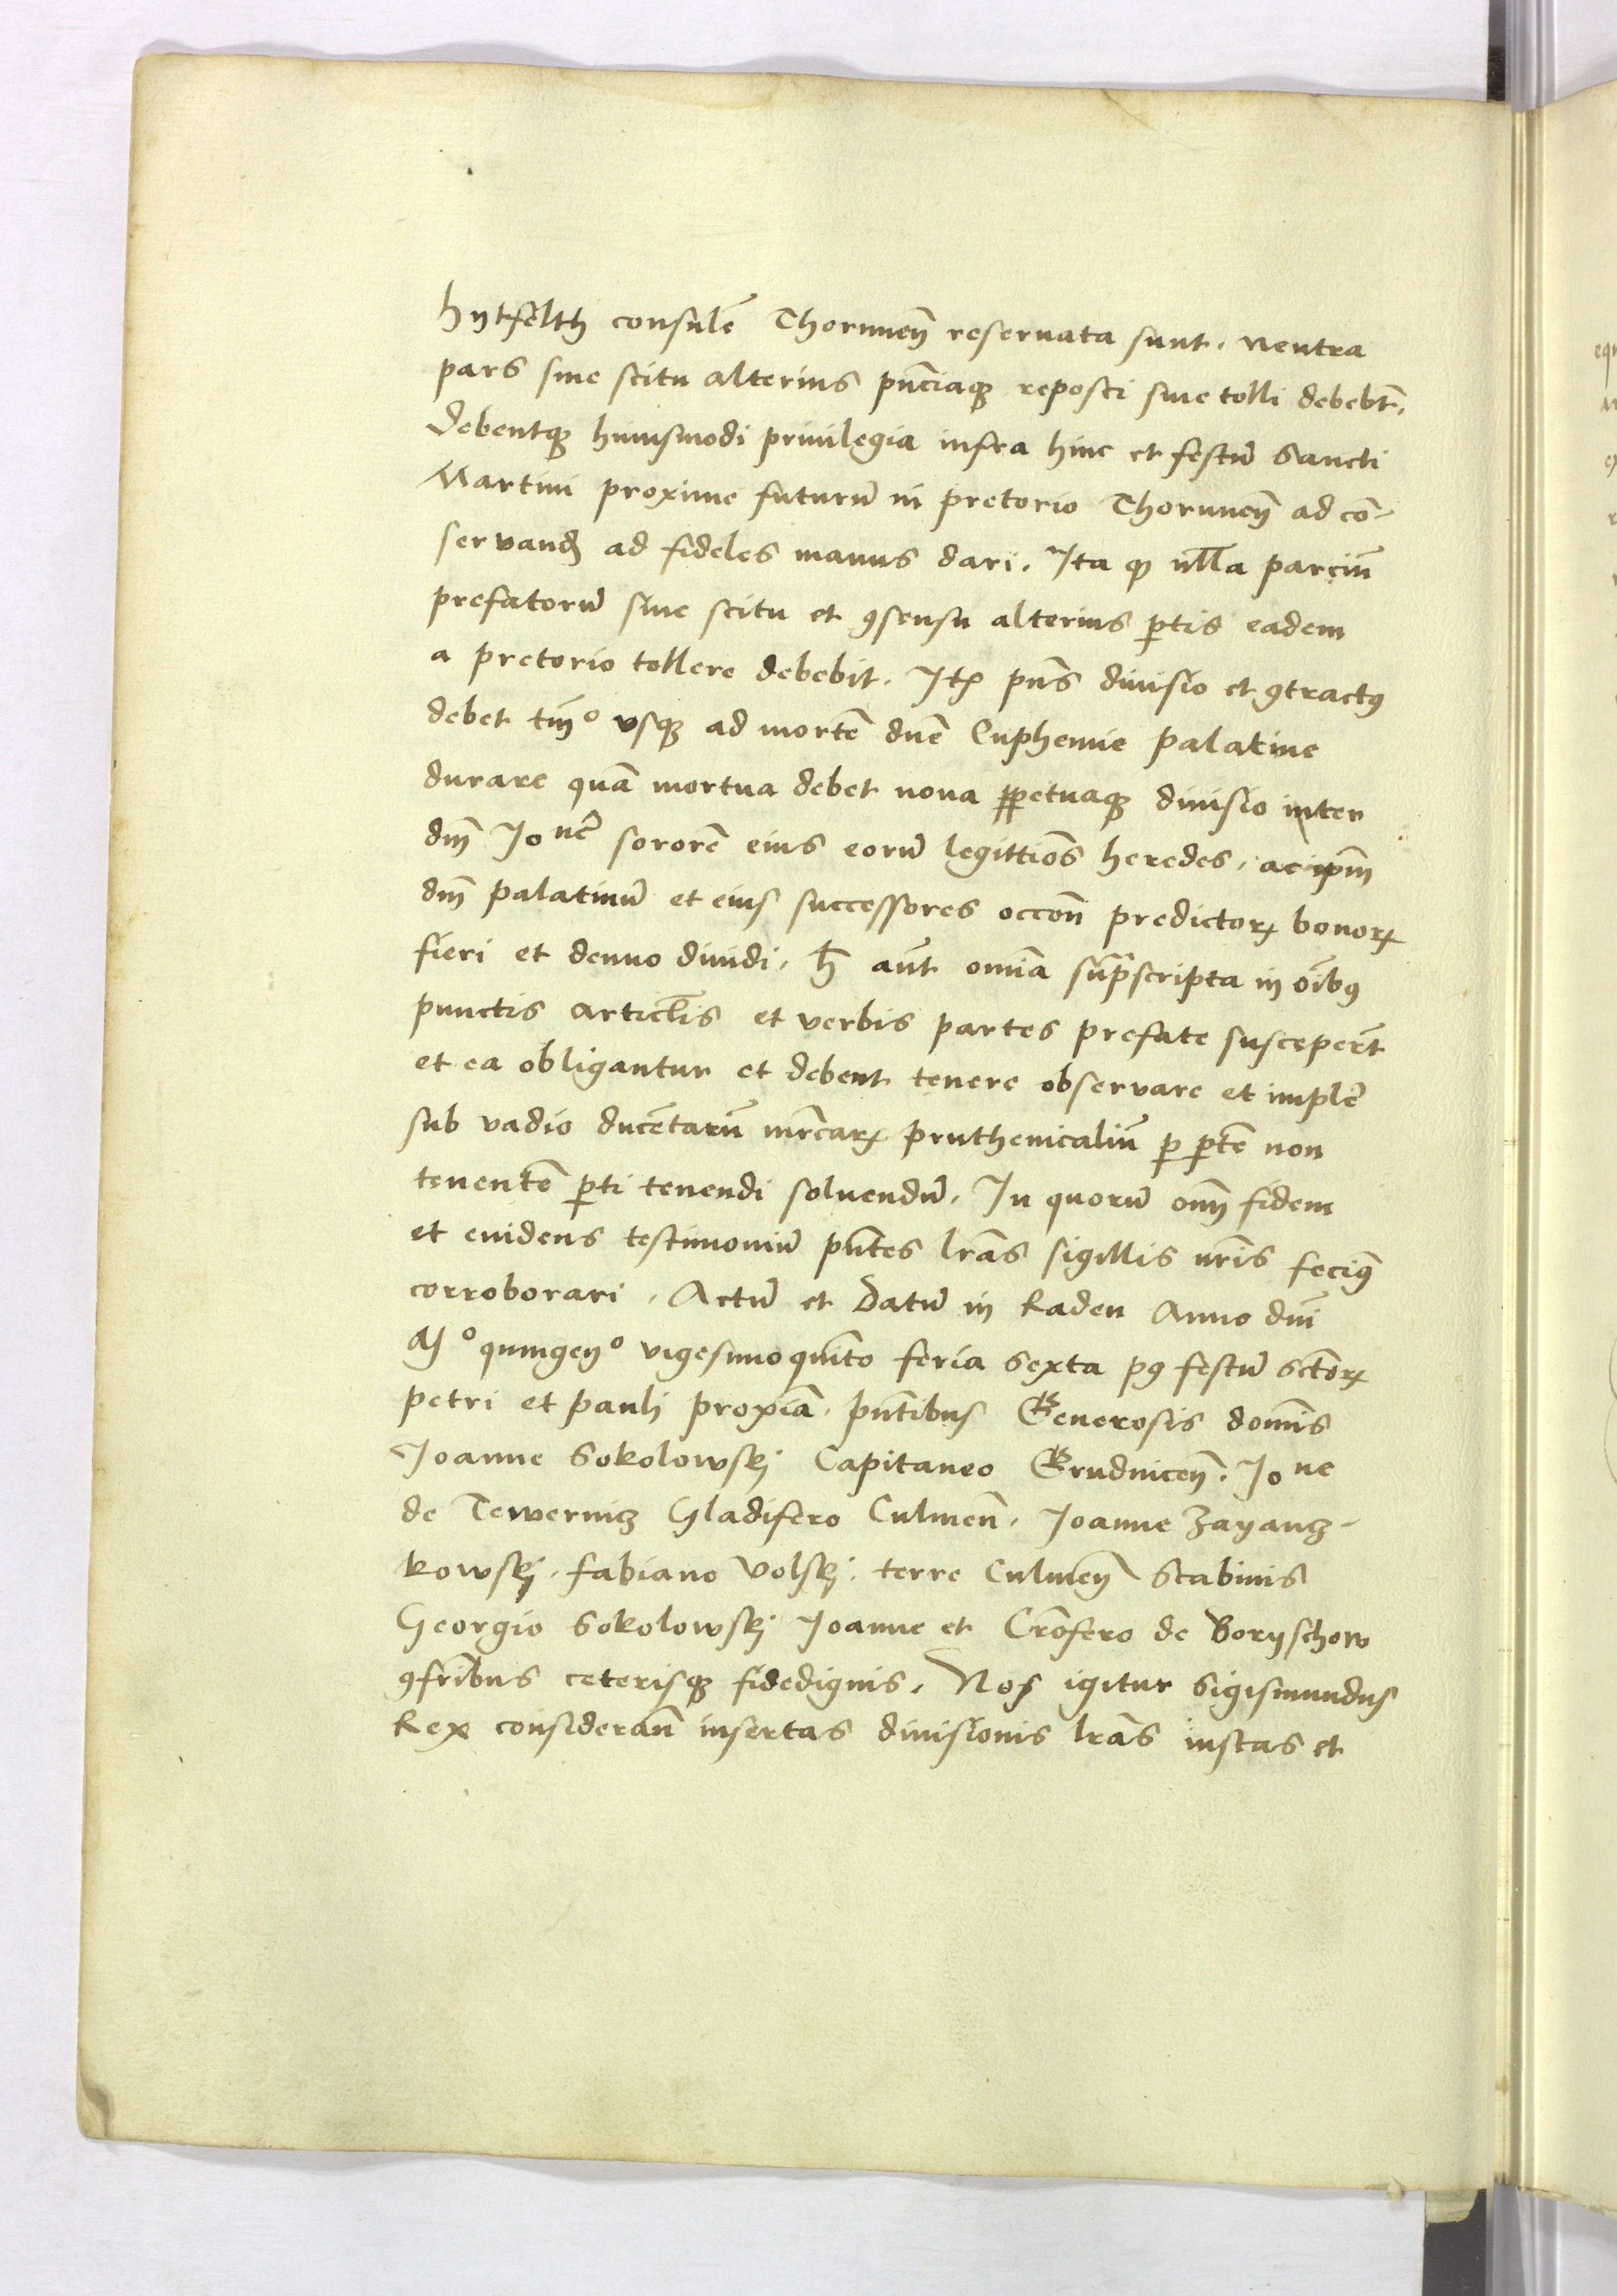 hytfelth consulē Thorunen̄ reseruata sunt. neutra
pars sine scitu alterius pn̄ciaqꝫ reposci siue tolli debebt̄.
Debentqꝫ huiusmodi priuilegia infra hinc et festū Sancti
Martini proxime futurū in pretorio Thorunen̄ ad cō-
servand̄ ad fideles manus dari. Ita ꝙ nlla parciū
prefatorū sine scitu et ꝯsensu alterius ꝑtis eadem
a pretorio tollere debebit. Itꝫ pn̄s diuisio et ꝯtractꝰ
debet tm̄o vsqꝫ ad mortē dn̄e Euphemie palatine
durare quā mortua debet noua ꝑpetuaqꝫ diuisio inter
dn̄m Ionē sororē eius eorū legittīos heredes. ac ip̄m
dn̄m palatinū et eius successores occōn̄ predictoꝝ bonoꝝ
fieri et denuo diuidi. h̄ aūt omīa sup̄rascripta in oībꝰ
punctis articlis et verbis partes prefate susceper̄t
et ea obligantur et debent tenere observare et implē
sub vadio ducētarū mr̄caꝝ pruthenicaliū ꝑ ꝑtē non
tenentē ꝑti tenendi soluendū. In quorū om̄ fidem
et euidens testimoniū pn̄tes lr̄as sigillis nr̄is fecimꝰ
corroborari. Actū et Datū in Raden Anno dn̄i
Mo quingeno vigesimo quīto feria sexta pꝰ festū sctoꝝ
petri et pauli proxīa. pn̄tibus Generosis domīs
Joanne Sokolowskj Capitaneo Grudnicen̄. Jone
de Tewernicz Gladifero Culmen̄. Joanne Zayancz-
kowskj. fabiano Volskj. terre Culmen̄ Scabinis
Georgio Sokolowskj Joanne et Crōfero de Boryschow
ꝯfr̄ibus ceterisqꝫ fidedignis. Nos igitur Sigismundus
Rex considerān̄ insertas diuisionis lr̄as iustas et